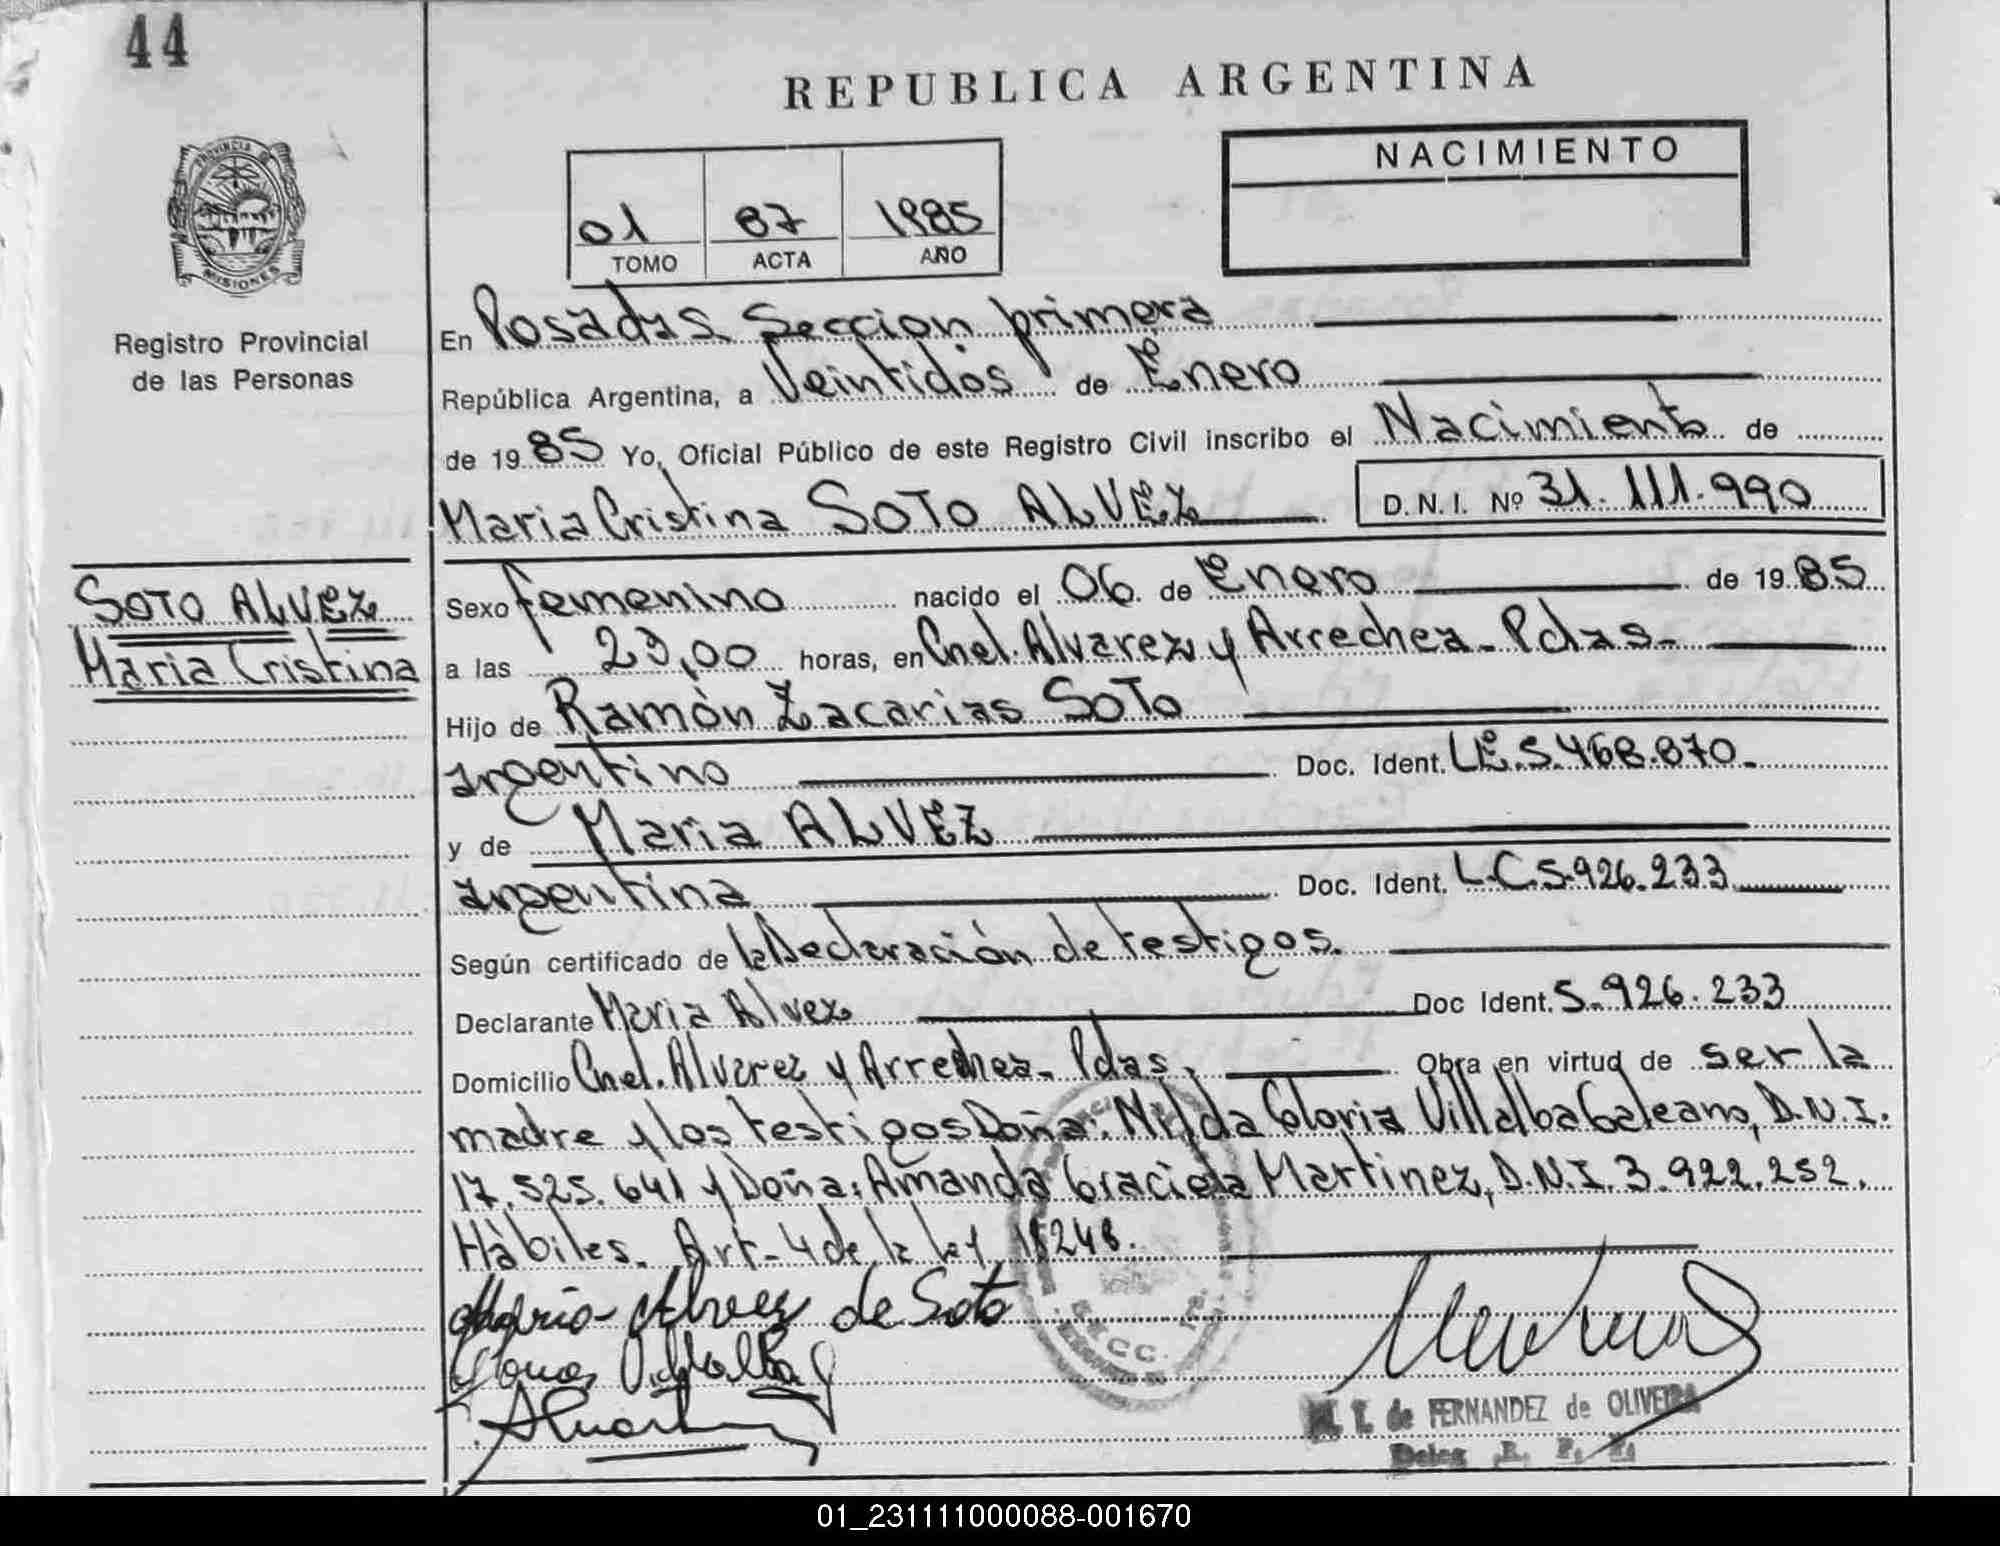 44
REPUBLICA ARGENTINA
PROVINCIA DE
MISIONES
Registro Provincial
de las Personas
01 87 1985
TOMO ACTA AÑO
NACIMIENTO
En Posadas Seccion primera
República Argentina, a Veintidós de Enero
de 1985 Yo, Oficial Público de este Registro Civil inscribo el Nacimiento de
Maria Cristina SOTO ALVEZ D.N.I. Nº 31.111.990
SOTO ALVEZ
Maria Cristina
Sexo femenino nacido el 06 de Enero de 1985
a las 23,00 horas, en Cnel. Alvarez y Arrechea - Pdas -
Hijo de Ramón Zacarias SOTO
argentino Doc. Ident. L.E. 5.468.870.
y de Maria ALVEZ
argentina Doc. Ident. L.C. 5.926.233
Según certificado de la Declaración de testigos.
Declarante Maria Alvez Doc Ident. 5.926.233
Domicilio Cnel. Alvarez y Arrechea - Pdas. Obra en virtud de ser la
madre y los testigos Doña: Nilda Gloria Villalba Galeano, D.N.I.
17.525.641 y Doña: Amanda Graciela Martinez, D.N.I. 3.922.252.
Hàbiles. Art-4 de la ley 18248.
Maria Alvez de Soto
Villalba G
M. T. de FERNANDEZ de OLIVEIRA
Deleg. R. P. P.
01_231111000088-001670